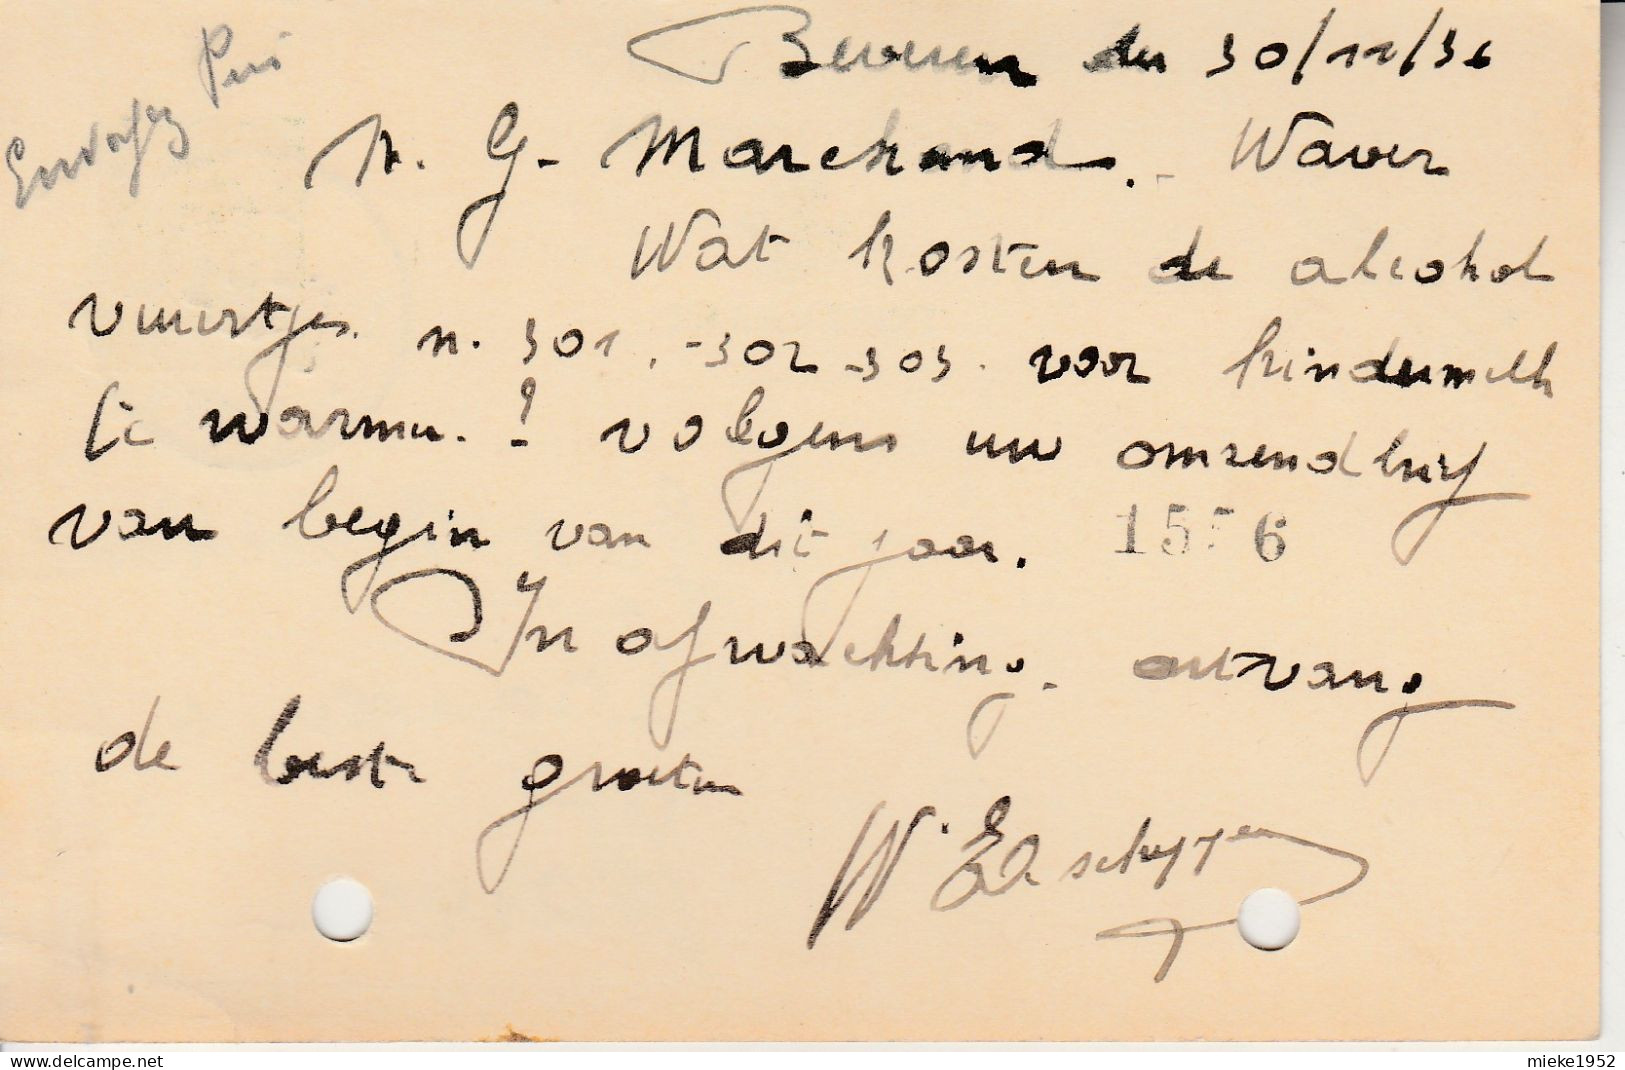 Beveren den 30/11/36
N. G. Marchand. Waver
Wat kosten de alcohol
vuurtjes n. 301. -302 -303. voor kindermelk
te warmen. ? volgens uw omzendbrief
van begin van dit jaar. 15 6
In afwachting. ontvang
de beste groeten
W. Elschuppen
www.delcampe.net
mieke1952